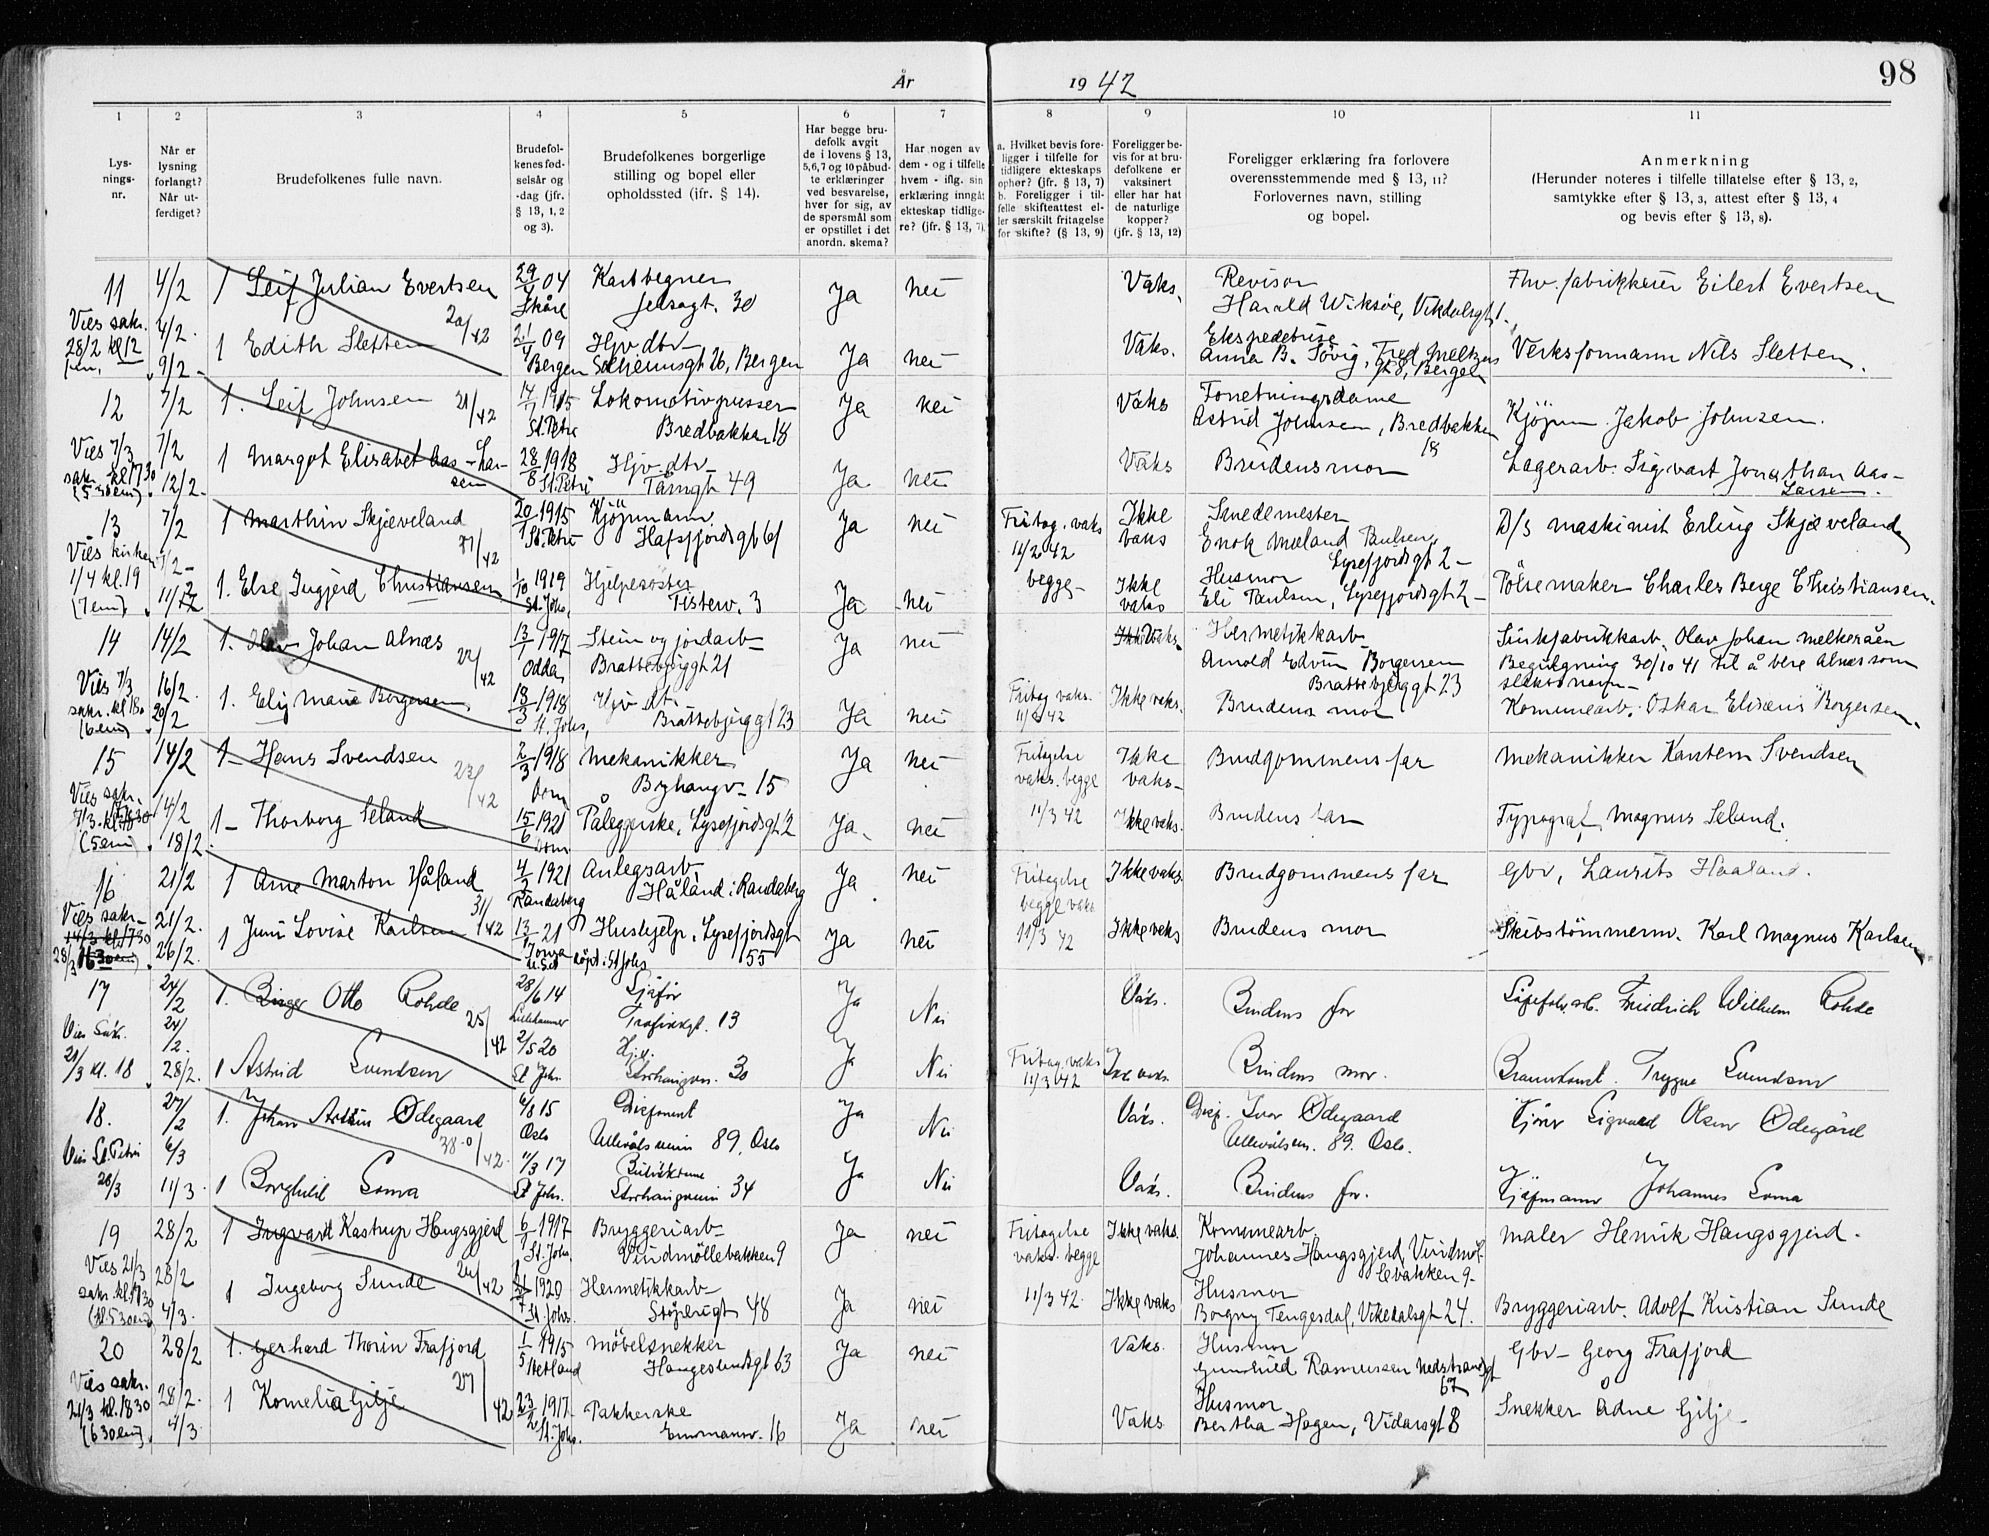 År 1942
98
1 2 3 4 5 6 7 8 9 10 11
Lysningsnr.
Når er lysning forlangt? Når utferdiget?
Brudefolkenes fulle navn.
Brudefolkenes fødselsår og -dag (jfr. § 13, 1, 2 og 3).
Brudefolkenes borgerlige stilling og bopel eller opholdssted (jfr. § 14).
Har begge brudefolk avgit de i lovens § 13, 5, 6, 7 og 10 påbudte erklæringer ved besvarelse, hver for sig, av de spørsmål som er opstillet i det anordn. skema?
Har nogen av dem - og i tilfelle hvem - iflg. sin erklæring inngått ekteskap tidligere? (jfr. § 13, 7).
a. Hvilket bevis foreligger i tilfelle for tidligere ekteskaps ophør? (jfr. § 13, 7) b. Foreligger i tilfelle skifteattest eller særskilt fritagelse for skifte? (§ 13, 9)
Foreligger bevis for at brudefolkene er vaksinert eller har hat de naturlige kopper? (jfr. § 13, 12)
Foreligger erklæring fra forlovere overensstemmende med § 13, 11? Forlovernes navn, stilling og bopel.
Anmerkning (Herunder noteres i tilfelle tillatelse efter § 13, 2, samtykke efter § 13, 3, attest efter § 13, 4 og bevis efter § 13, 8).
11 4/2 1 Leif Julian Evertsen 04 Skåre Ja nei Vaks. Revisor Harald Wiksøe, Vikedalsgt 1. Fhv. fabrikkeier Eilert Evertsen
Vies sakr. 28/2 kl 12 4/2. 9/2 1 Edith Sletten 20/42 09 Bergen Hjv. dtr Solheimsgt 26, Bergen Ja nei Vaks. Ekspeditrise Anna B. Søvig, Fred. Meltzers gt 8, Bergen Verksformann Nils Sletten.
12 7/2 1. Leif Johnsen 21/42 1915 St. Petri Lokomotivpusser Bredbakken 18 Ja nei Vaks Forretningsdame Astrid Johnsen, Bredbakken 18 Kjøpm. Jakob Johnsen.
Vies 7/3 sakr. kl 1730 (530 em) 7/2 12/2. 1 Margot Elisabet Aas-Larsen 28/8 1918 St. Petri Hjv. dtr Tamgt 49 Ja nei Vaks Brudens mor Lagerarb. Sigvart Jonathan Aas-Larsen.
13 7/2 1 Marthin Skjæveland 20/1 1915 St. Petri Kjøpmann Hafsfjordsgt 61 Ja nei Fritag. vaks 11/2 42 begge Ikke vaks Smedemester Enok Mæland Paulsen, Lysefjordsgt 2 D/S maskinist Erling Skjæveland
Vies kirken 1/4 kl. 19 (7 em) 1. Else Ingjerd Christiansen 1/10 1919 St. Johs. Hjelpesøster Tisterv. 3 Ja nei Ikke vaks Husmor Eli Paulsen, Lysefjordsgt 2 Pølsemaker Charles Berge Christiansen.
14 14/2 1. Olav Johan Alnæs 22/42 13/1 1917 Odda Stein og jordarb Brattebjerggt 21 Ja nei Vaks. Hermetikkarb Arnold Edvin Borgersen Brattebjerggt 23 Sinkfabrikkarb. Olav Johan Melkeråen Begulgning 30/10 41 til å bere Alnæs som slektsnavn
Vies 7/3 sakr. kl 180 (6 em) 16/2. 20/2 1. Elly Marie Borgersen 18/3 1918 St. Johs, Hjv. dt. Brattebjerggt 23 Ja nei Fritag vaks. 11/2 42 Ikke vaks. Brudens mor Kommunearb. Oskar Elisæus Borgersen.
15 14/2 1 Hans Svendsen 23/42 2/3 1918 Dom Mekanikker Byhaugv 15 Ja nei Fritagelse vaks. begge Ikke vaks Brudgommens far Mekanikker Karsten Svendsen
Vies sakr. 7/3. (5 em) 14/2 18/2 1 Thorborg Seland 15/6 1921 Dom Påleggerske, Lysefjordsgt 2 Ja nei 11/3 42 Ikke vaks. Brudens far Typograf Magnus Seland.
16 21/2 1 Arne Marton Håland 31/42 1921 Randaberg Anlegsarb Håland i Randaberg Ja. nei Fritagelse begge vaks Ikke vaks. Brudgommens far Gbr, Laurits Haaland.
Vies sakr 14/3 kl. 1730 28/3 21/2. 26/2. 1 Juni Lovise Karlsen 13 21 døpt i St Johs Hushjelp, Lysefjordsgt 55 Ja nei 11/3 42 Ikke vaks Brudens mor Skibstømmerm. Karl Magnus Karlsen
17 24/2 1. Birger Otto Rohde 25/42 28/6 14 Lillehammer Sjåfør Trafikkgt. 13 Ja Nei Vaks. Brudens far Friedrich Wilhelm Rohde
Vies Sakr. 21/3 kl. 18 24/2. 28/2. 1 Astrid Svendsen 2/5 20 St Johs. Hjv. Storhaugvn. 30 Ja Nei Fritag. vaks 11/3 42 Ikke vaks. Brudens mor. Brannkonst. Trygve Svendsen
18. 27/2 1. Johan Ødegaard 38.0/42 6/8 15 Oslo Disponent Ullevålsveien 89, Oslo Ja Nei Vaks. Disp. Ivar Ødegaard Ullevålsvn. 89. Oslo. Kjører Sigvard Olsen Ødegård
Vies St. Petri 28/3 6/3 11/3. 1 Borghild Soma 11/3 17 St Johs. Storhaugveien 34 Ja Nei Vaks. Brudens far. Kjøpmann Johannes Soma
19 28/2 1 Ingvard Kastrup Haugsgjerd 6/1 1917 St. Johs. Bryggeriarb Vindmøllebakken 9 Ja nei Fritagelse vaks. begge Ikke vaks. Kommearb. Johannes Haugsgjerd, Vindmøllebakken 9 Maler Henrik Haugsgjerd.
Vies 21/3 sakr. kl. 1730 (kl. 530 em) 28/2 4/3. 1 Ingeborg Sunde 24/42 1920 St. Johs. Hermetikkarb Støperigt 48 Ja nei 11/3 42. Ikke vaks Husmor Borgny Tengesdal, Vikedalsgt 24. Bryggeriarb. Adolf Kristian Sunde
20 28/2 1. Gerhard Thorin Frafjord 27/42 1/5 1915 Hetland Møbelsnekker Haugesundsgt 63 Ja nei Vaks. Husmor Gunhild Rasmussen Nedstrandsgt 67 Gbr Georg Frafjord
Vies sakr. 21/3 kl. 1830 (630 em) 28/2. 4/3. 1 Kornelia Gilje 23/2 1917 St. Johs. Pakkerske Emmausv. 16 Ja nei Vaks Husmor Bertha Hagen, Vidarsgt 8 Snekker Ådne Gilje